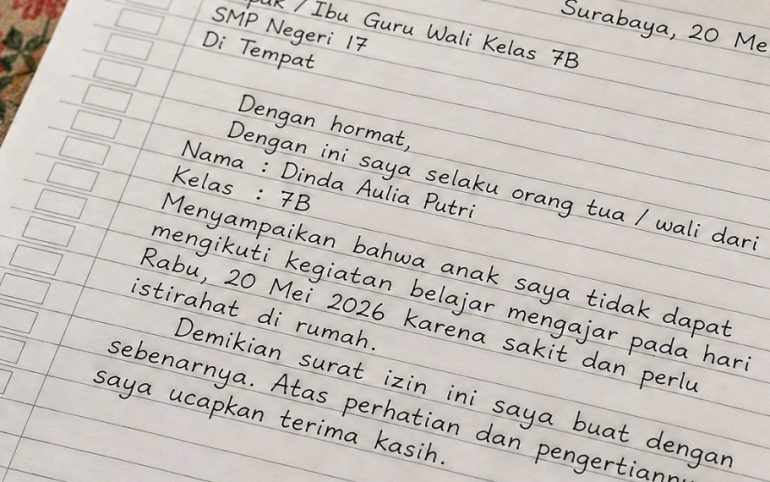 Surabaya, 20 Me
/ Ibu Guru Wali Kelas 7B
SMP Negeri 17
Di Tempat
Dengan hormat,
Dengan ini saya selaku orang tua / wali dari
Nama : Dinda Aulia Putri
Kelas : 7B
Menyampaikan bahwa anak saya tidak dapat
mengikuti kegiatan belajar mengajar pada hari
Rabu, 20 Mei 2026 karena sakit dan perlu
istirahat di rumah.
Demikian surat izin ini saya buat dengan
sebenarnya. Atas perhatian dan pengertiann
saya ucapkan terima kasih.